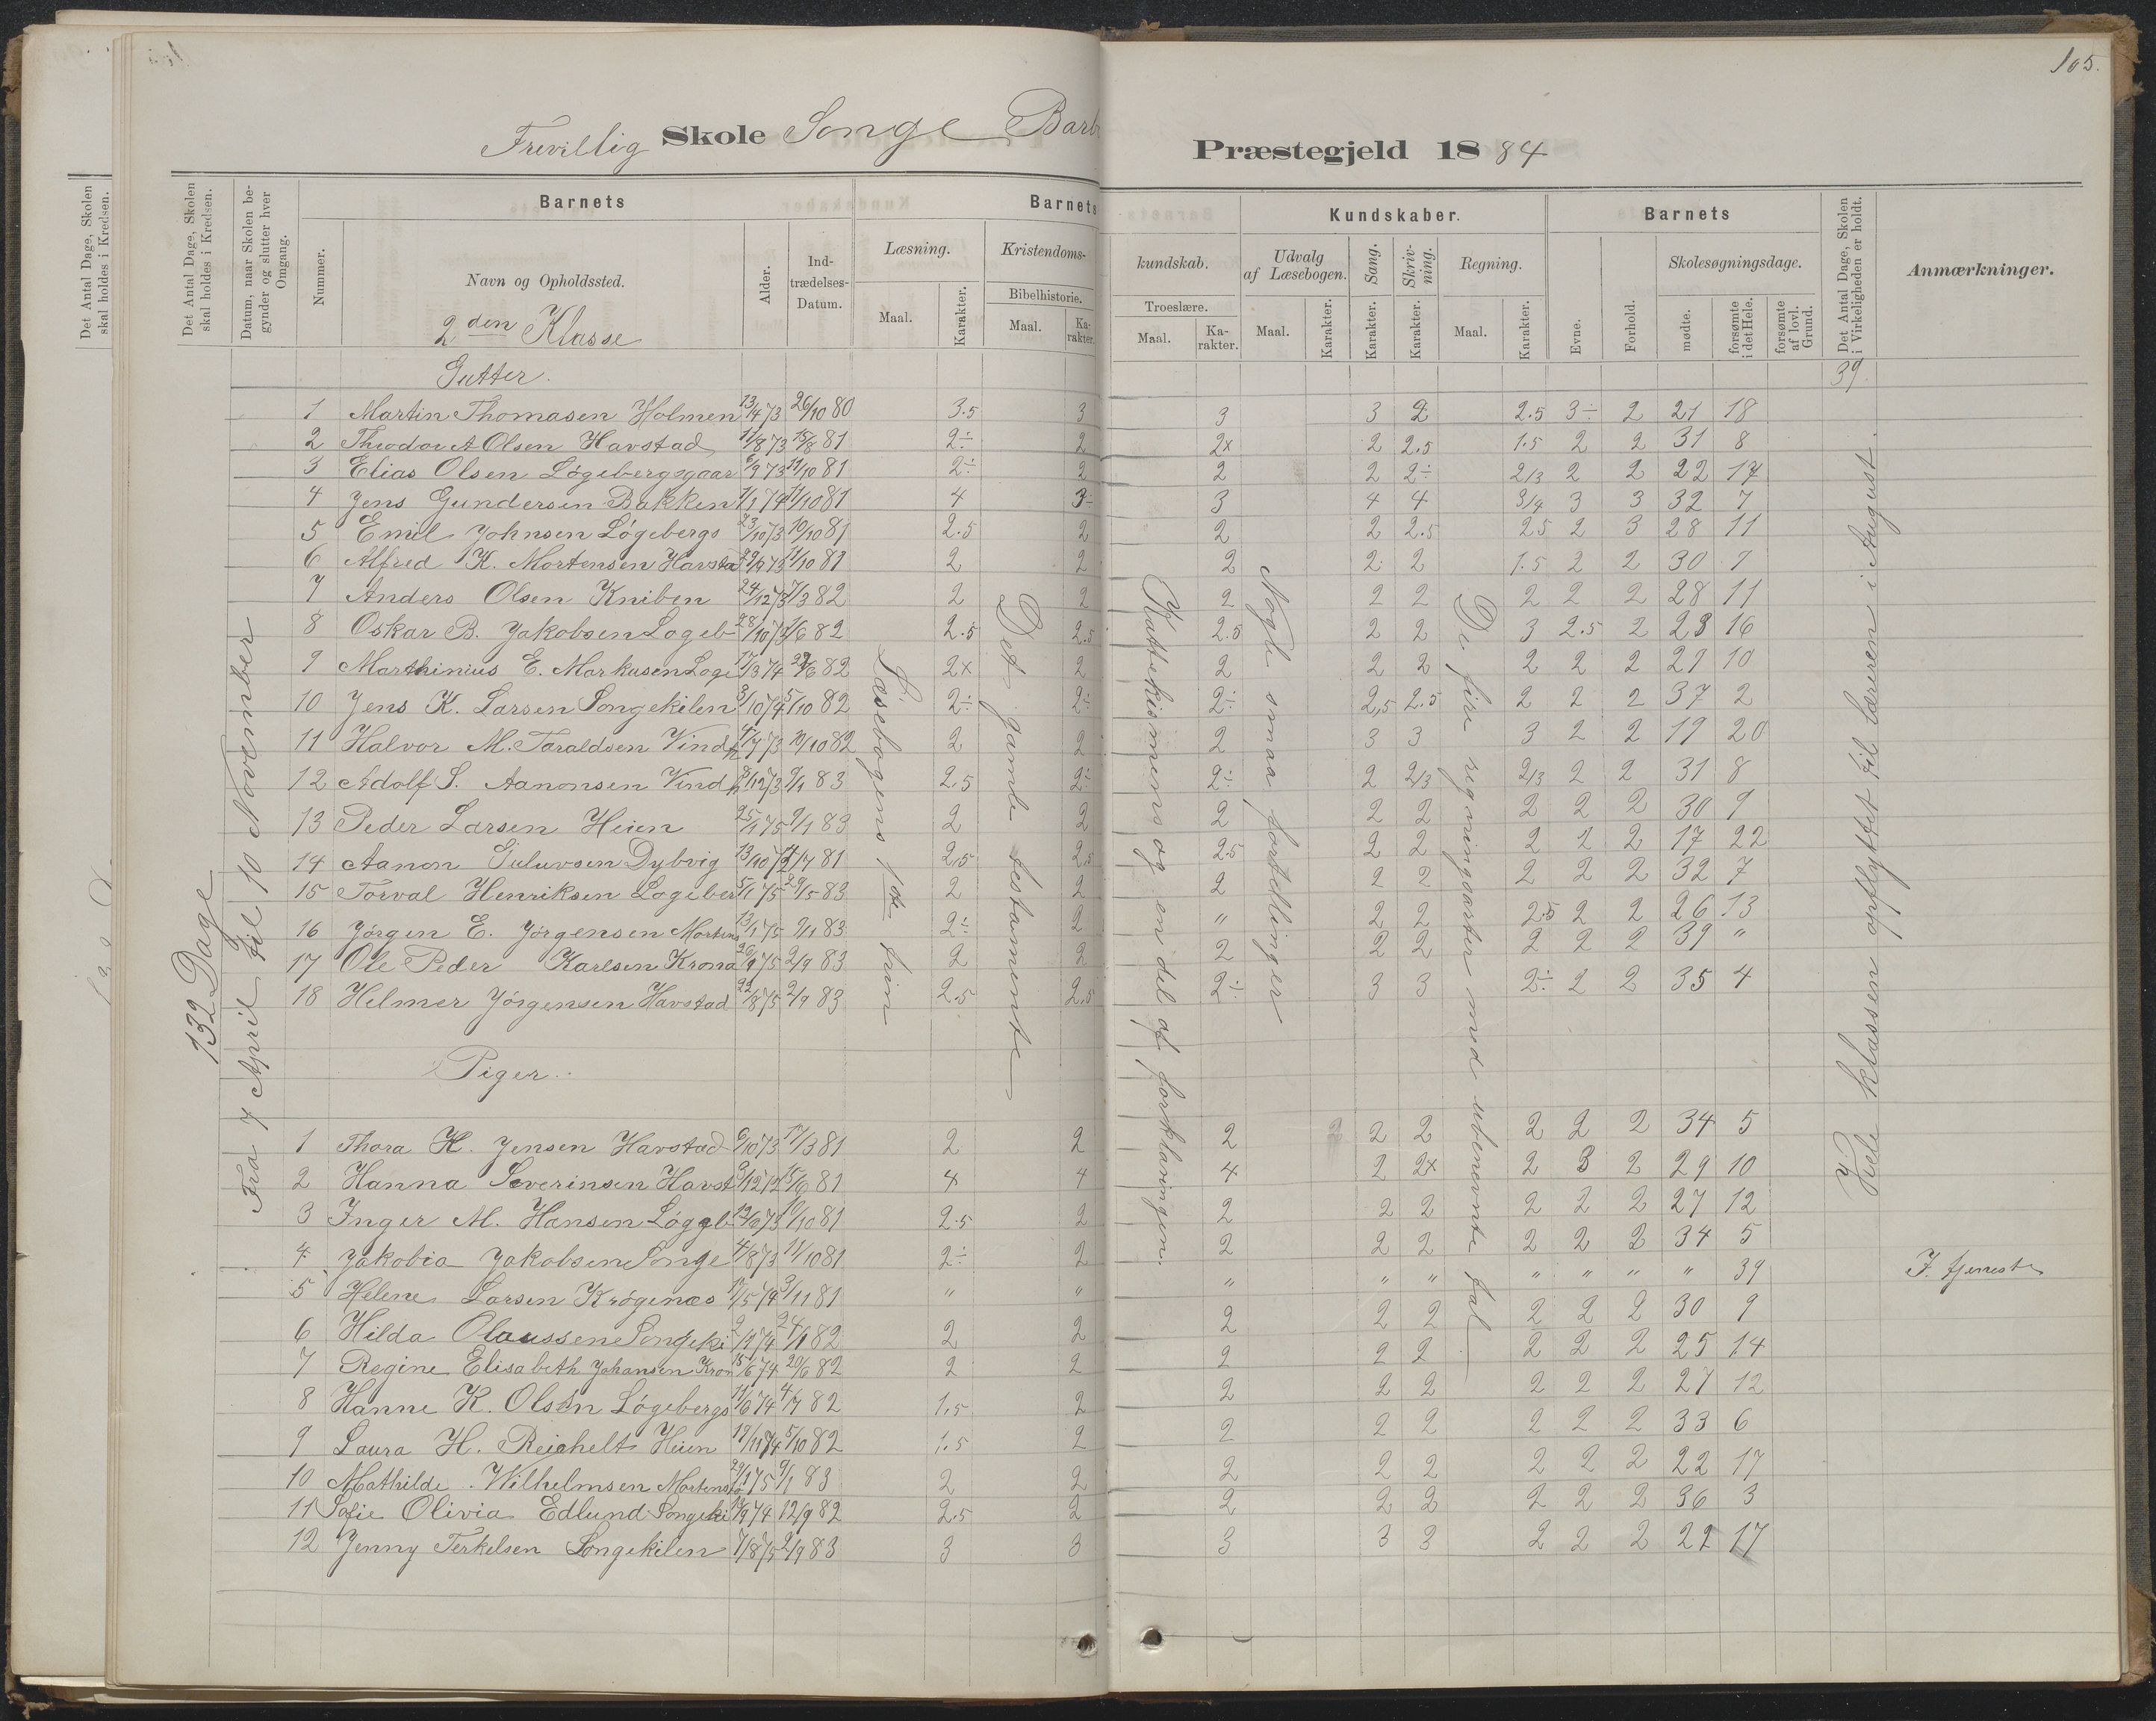 105.
Frivillig Skole Songe Barb
Præstegjeld 1884
Det Antal Dage, Skolen skal holdes i Kredsen.
Det Antal Dage, Skolen skal holdes i Kredsen.
Datum, naar Skolen begynder og slutter hver Omgang.
Barnets
Nummer.
Navn og Opholdssted.
Alder.
Indtrædelses-Datum.
Barnets
Læsning.
Maal.
Karakter.
Kristendoms-
Bibelhistorie.
Maal.
Karakter.
kundskab.
Troeslære.
Maal.
Karakter.
Kundskaber.
Udvalg af Læsebogen.
Maal.
Karakter.
Sang.
Karakter.
Skrivning.
Karakter.
Regning.
Maal.
Karakter.
Barnets
Evne.
Forhold.
Skolesøgningsdage.
mødte.
forsømte i det Hele.
forsømte af lovl. Grund.
Det Antal Dage, Skolen i Virkeligheden er holdt.
Anmærkninger.
2den Klasse
Gutter.
39.
1 Martin Thomasen Holmen 13/4 73 26/10 80 3.5 3 3 3 2 2.5 3÷ 2 21 18
2 Theodor A Olsen Havstad 11/8 73 15/8 81 2÷ 2 2x 2 2.5 1.5 2 2 31 8
3 Elias Olsen Løgebergsgaar 6/9 73 11/10 81 2÷ 2 2 2 2÷ 2/3 2 2 22 17
4 Jens Gundersen Bakken 1/1 74 11/10 81 4 3÷ 3 4 4 3/4 3 3 32 7
5 Emil Johnsen Løgebergs 23/10 73 10/10 81 2.5 2 2 2 2.5 2.5 2 3 28 11
6 Alfred K. Mortensen Havsta 29/9 73 11/10 81 2 2 2 2 2 1.5 2 2 30 9
7 Anders Olsen Kniben 24/12 73 7/3 82 2 2 2 2 2 2 2 2 28 11
8 Oskar B. Jakobsen Logeb 28/10 73 1/6 82 2.5 2.5 2.5 2 2 3 2.5 2 23 16
9 Marthinius E. Markusen Loge 17/3 74 22/6 82 2x 2 2 2 2 2 2 2 29 10
10 Jens K. Larsen Songekilen 3/10 74 5/10 82 2÷ 2÷ 2÷ 2,5 2.5 2 2 2 37 2
11 Halvor M. Taraldsen Vindh 17/7 73 10/10 82 2 2 2 3 3 3 2 2 19 20
12 Adolf S. Aanonsen Vindh 8/12 73 9/1 83 2.5 2÷ 2÷ 2 2/3 2/3 2 2 31 8
13 Peder Larsen Heien 25/1 75 9/1 83 2 2 2 2 2 2 2 2 30 9
14 Aanon Guluvsen Dybvig 13/10 72 4/7 81 2,5 2,5 2.5 2 2 2 2 2 17 22
15 Torval Henriksen Logeber 5/1 75 29/5 83 2 2 2 2 2 2 2 2 32 7
16 Jørgen E. Jørgensen Mortens 13/1 75 9/1 83 2÷ 2 " 2 2 2.5 2 2 26 13
17 Ole Peder Karlsen Krona 26/9 75 2/9 83 2 2 2 2 2 2 2 2 39 "
18 Helmer Jørgensen Havstad 22/8 75 2/9 83 2.5 2.5 2÷ 3 3 2÷ 2 2 35 4
132 Dage
Fra 7 April til 10 November
Læsebogens 1ste trin
Det gamle testamente
Kattekismens og en del af forklaringen
Nogle smaa fortellinger
De fire regningsarter med ubenevnte tal
Hele klassen opflyttet til læreren i August.
Piger.
1 Thora H. Jensen Havstad 6/10 73 17/3 81 2 2 2 2 2 2 2 2 34 5
2 Hanna Severinsen Havst 9/12 72 15/8 81 4 4 4 2 2x 2 3 2 29 10
3 Inger M. Hansen Løggeb 10/10 81 2.5 2 2 2 2 2 2 2 27 12
4 Jakobia Jakobsen Songe 4/8 73 11/10 81 2÷ 2 2 2 2 2 2 2 34 5
5 Helene Larsen Krøgenæs 17/5 74 3/11 81 " " " " " " " " " 39 I. tjeneste
6 Hilda Olaussen Songeki 24/1 82 2 2 2 2 2 2 2 2 30 9
7 Regine Elisabeth Johansen Kron 15/6 74 20/6 82 2 2 2 2 2 2 2 2 25 14
8 Hanne K. Olsen Løgebergs 11/6 74 4/7 82 1,5 2 2 2 2 2 2 2 27 12
9 Laura H. Reichelt Heien 19/11 74 5/10 82 1.5 2 2 2 2 2 2 2 33 6
10 Mathilde Wilhelmsen Mortenstø 29/1 75 9/1 83 2 2 2 2 2 2 2 2 22 17
11 Sofie Olivia Edlund Songeki 18/9 74 12/9 82 2.5 2 2 2 2 2 2 2 36 3
12 Jenny Terkelsen Songekilen 7/8 75 2/9 83 3 3 3 3 3 2 2 2 22 17